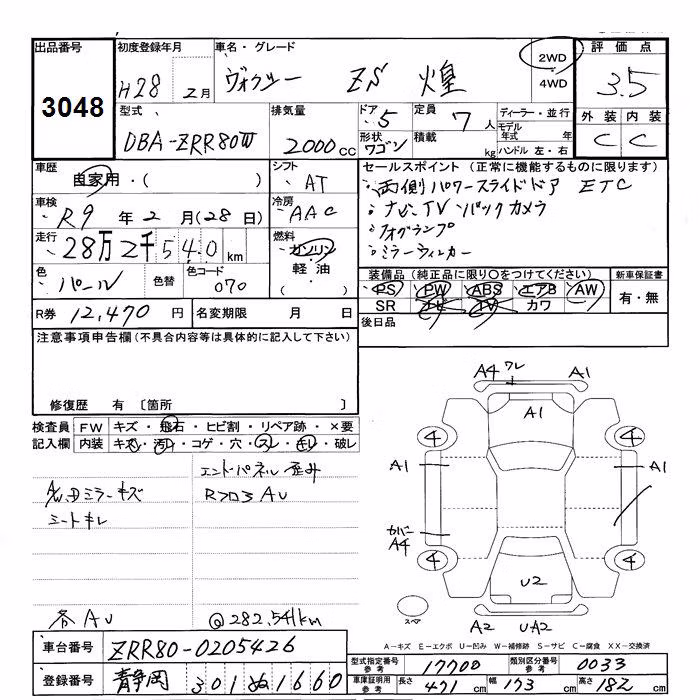 出品番号 初度登録年月 車名・グレード 評価点
3048 H28 2月 ヴォクシー ZS 煌 2WD 4WD 3.5
型式 排気量 ドア 5 定員 7人 ディーラー・並行 外装 内装
DBA-ZRR80W 2000cc 形状 ワゴン 積載 kg モデル年式 年 ハンドル 左・右 C C
車歴 自家用・( ) シフト AT セールスポイント (正常に機能するものに限ります)
・両側パワースライドドア ETC
車検 R9年2月(28日) 冷房 AAC ・ナビ、TV バックカメラ
・フォグランプ
走行 28万2千540km 燃料 ガソリン 軽油 ・ ・ミラーウィンカー
色 パール 色替 色コード 070 装備品 (純正品に限り○をつけてください) 新車保証書
PS PW ABS エアB AW 有・無
R券 12,470円 名変期限 月 日 SR ナビ TV カワ
後日品
注意事項申告欄 (不具合内容等は具体的に記入して下さい)
修復歴 有 〔箇所 〕
検査員記入欄 FW キズ・飛石・ヒビ割・リペア跡・×要
内装 キズ・汚れ・コゲ・穴・スレ・キレ・破レ
エンドパネル歪み
ミラーキズ
シートキレ
各AU @282,541km
A4 ワレ A1
A1
4 4
A1 A1
カバー A4
4 4
U2
スペア A2 UA2
A-キズ E-エクボ U-凹み W-補修跡 S-サビ C-腐食 XX-交換済
車台番号 ZRR80-0205426
登録番号 静岡 301 ぬ 1660
型式指定番号 参考 17700 類別区分番号 参考 0033
車庫証明用 参考 長さ 471cm 幅 173cm 高さ 182cm